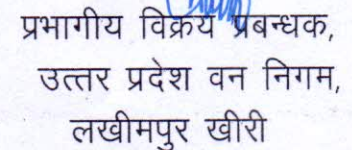 प्रभागीय विक्रय प्रबन्धक,
उत्तर प्रदेश वन निगम,
लखीमपुर खीरी